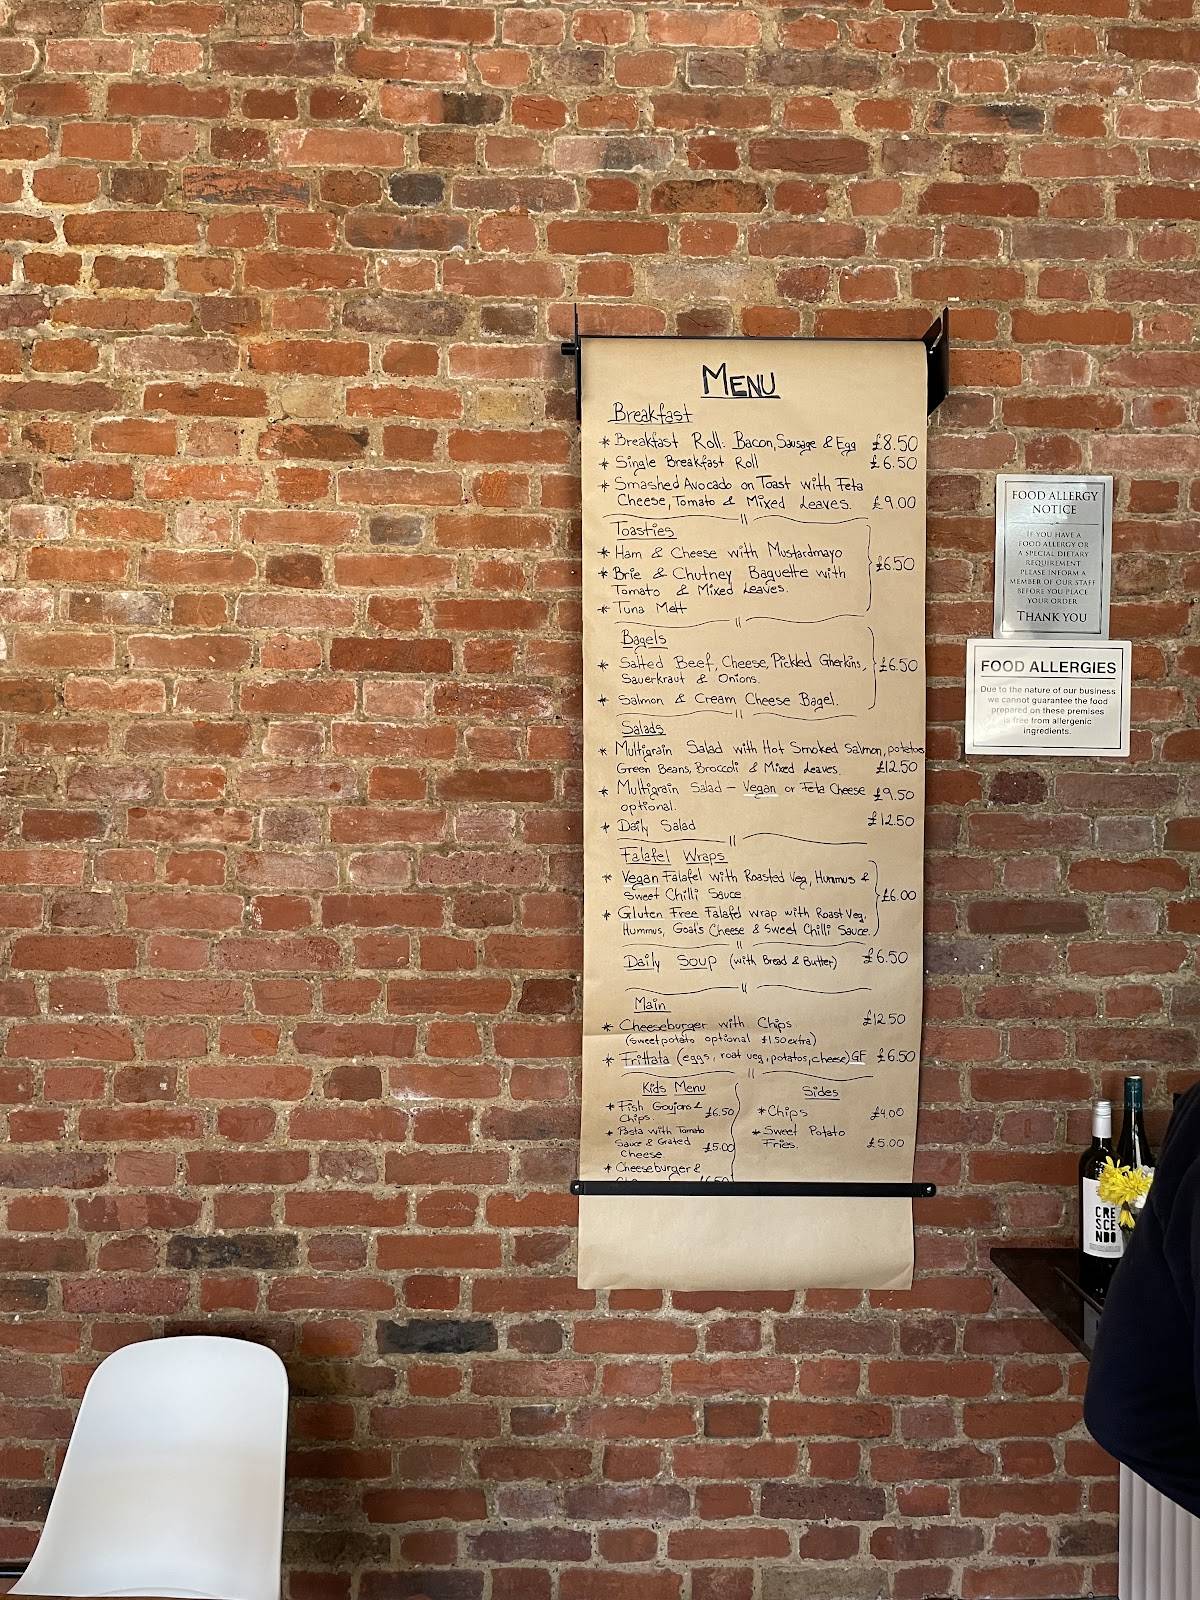 MENU
Breakfast
* Breakfast Roll: Bacon, Sausage & Egg £8.50
* Single Breakfast Roll £6.50
* Smashed Avocado on Toast with Feta
Cheese, Tomato & Mixed Leaves. £9.00
Toasties
* Ham & Cheese with Mustardmayo
* Brie & Chutney Baguette with £6.50
Tomato & Mixed Leaves.
* Tuna Melt
Bagels
* Salted Beef, Cheese, Pickled Gherkins, £6.50
Sauerkraut & Onions.
* Salmon & Cream Cheese Bagel.
Salads
* Multigrain Salad with Hot Smoked Salmon, potatoes
Green Beans, Broccoli & Mixed Leaves. £12.50
* Multigrain Salad - Vegan or Feta Cheese £9.50
optional.
* Daily Salad £12.50
Falafel Wraps
* Vegan Falafel with Roasted Veg, Hummus &
Sweet Chilli Sauce £6.00
* Gluten Free Falafel wrap with Roast Veg,
Hummus, Goat's Cheese & Sweet Chilli Sauce.
Daily Soup (with Bread & Butter) £6.50
Main
* Cheeseburger with Chips £12.50
(sweet potato optional £1.50 extra)
* Frittata (eggs, roat veg, potatos, cheese) GF £6.50
Kids Menu
* Fish Goujons &
Chips. £6.50
* Pasta with Tomato
Sauce & Grated £5.00
Cheese
* Cheeseburger &
Sides
* Chips £4.00
* Sweet Potato
Fries. £5.00
FOOD ALLERGY
NOTICE
IF YOU HAVE A
FOOD ALLERGY OR
A SPECIAL DIETARY
REQUIREMENT
PLEASE INFORM A
MEMBER OF OUR STAFF
BEFORE YOU PLACE
YOUR ORDER
THANK YOU
FOOD ALLERGIES
Due to the nature of our business
we cannot guarantee the food
prepared on these premises
is free from allergenic
ingredients.
CRE
SCE
NDO